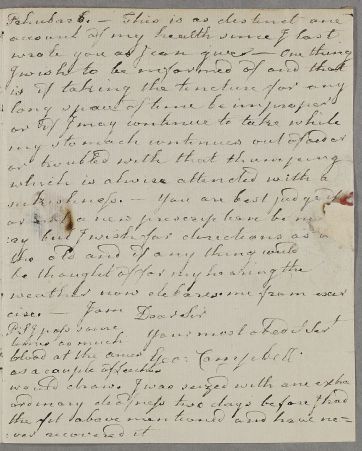 Feb<sup>ry</sup> 26. — This is as distinct ane
account of my health since I last
wrote you as I can give — One thing
I wish to be informed of and that
is if taking the tincture for any
long space of time be improper
or if I may continue to take while
my stomach continues out of order
or troubled with that thumping
which is alwise attended with a
sickishness. — You are best judge if
or a new prescription be ne
ry but I wish for directions as to
the old and if any thing would
be thought of for my hearing the
weather now debares me from exer
cise. — I am Dear Sir
Your most obed Ser<sup>t</sup>
Geo: Campbell
P.S. I pass some
times as much
blood at the anus
as a couple of leeches
would draw. I was seized with ane extra
ordinary deafness two days before I had
the fit above mentioned and have ne=
ver recovered it